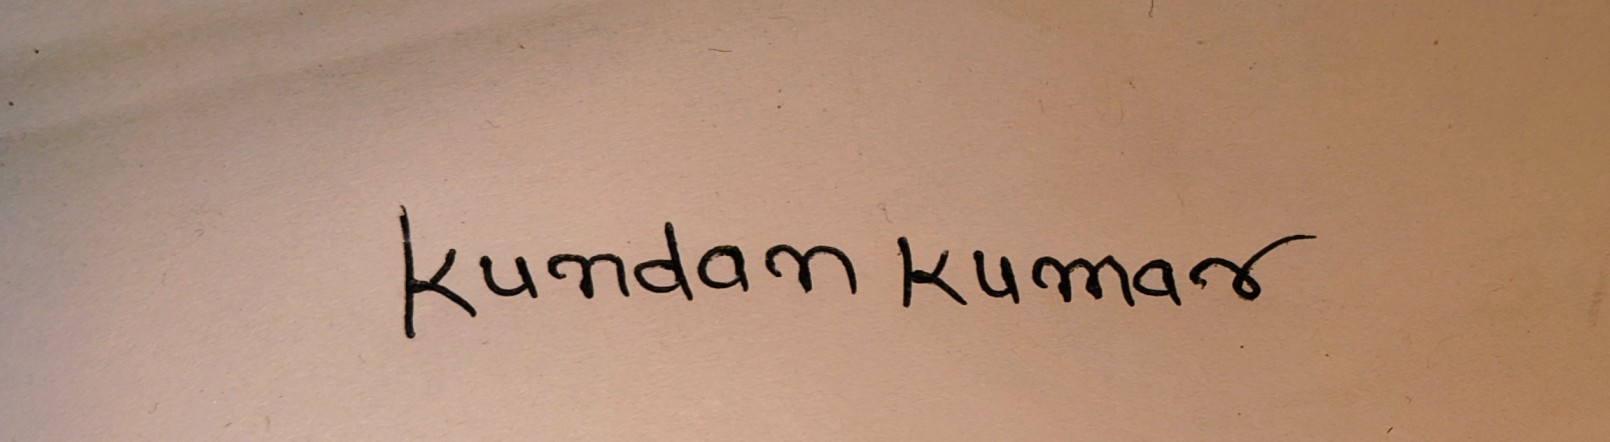 Kundan Kumar